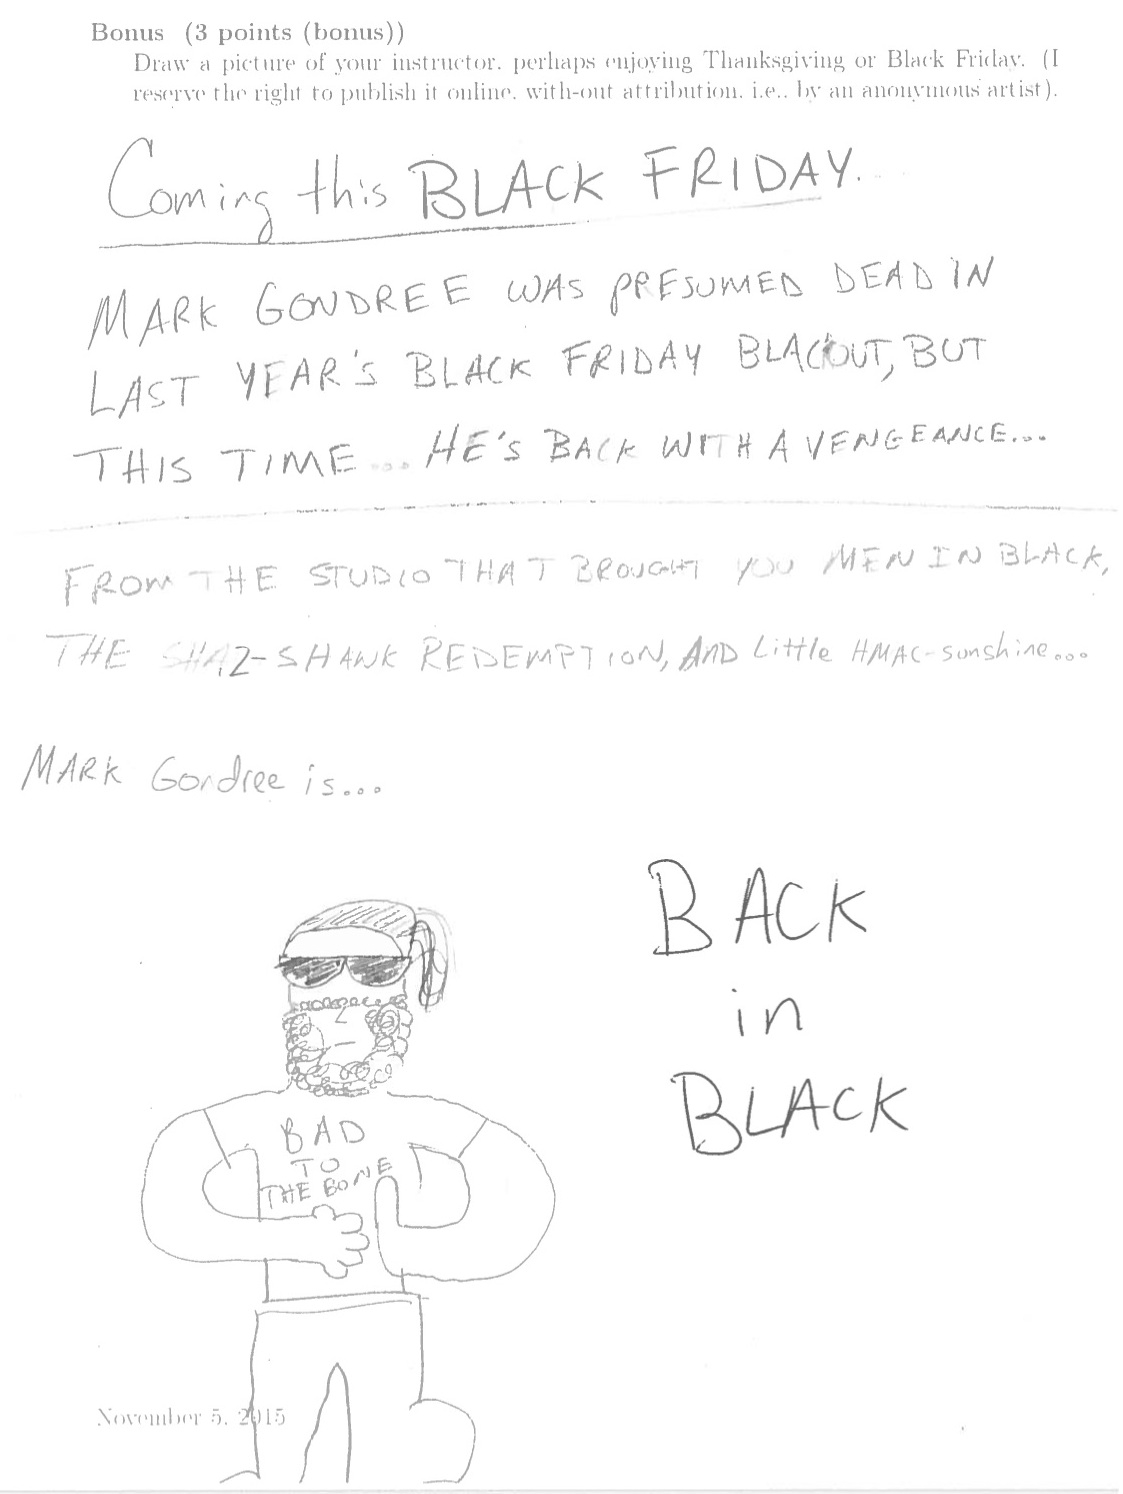 Bonus (3 points (bonus))
Draw a picture of your instructor, perhaps enjoying Thanksgiving or Black Friday. (I
reserve the right to publish it online, with-out attribution, i.e., by an anonymous artist).
Coming this BLACK FRIDAY...
MARK GONDREE WAS PRESUMED DEAD IN
LAST YEAR'S BLACK FRIDAY BLACKOUT, BUT
THIS TIME... HE'S BACK WITH A VENGEANCE...
FROM THE STUDIO THAT BROUGHT YOU MEN IN BLACK,
THE SHA2-SHAWK REDEMPTION, AND Little HMAC-sunshine...
MARK Gondree is...
BACK
in
BLACK
BAD
TO
THE BONE
November 5, 2015